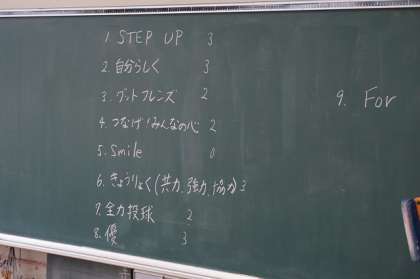 1. STEP UP 3
2. 自分らしく 3
3. グットフレンズ 2
4. つなげ!みんなの心 2
5. Smile 0
6. きょうりょく(共力、強力、協力) 3
7. 全力投球 2
8. 優 3
9. For